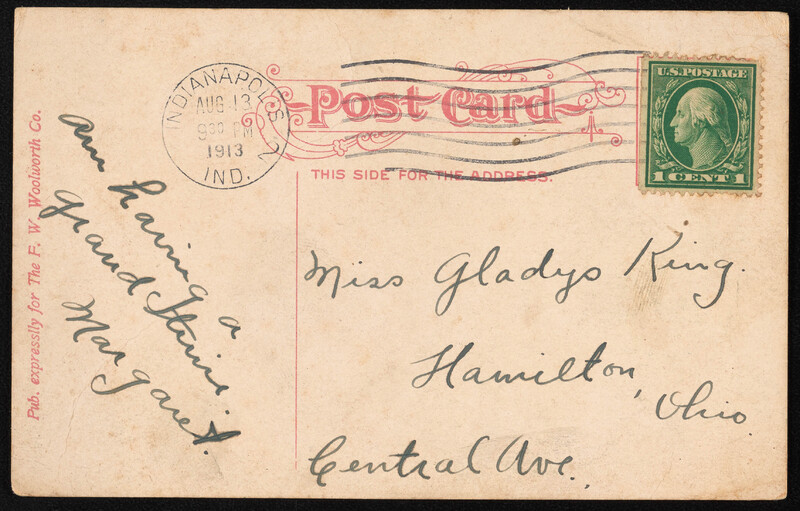 Pub. expressly for The F. W. Woolworth Co.
INDIANAPOLIS 2
AUG 13
9 30 PM
1913
IND.
Post Card
THIS SIDE FOR THE ADDRESS.
U.S. POSTAGE
1 CENT 1
Am having a
grand time.
Margaret.
Miss Gladys King.
Hamilton,
Ohio
Central Ave.